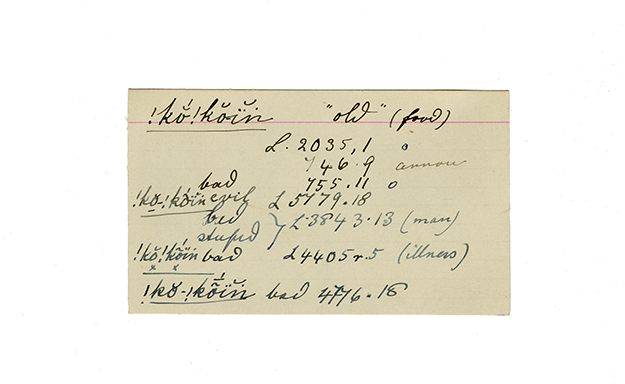 !kŏ́!kŏïn̆ "old" (food)
L. 2035,1 o
746.9 arrow
bad 755.11 o
!kŏ-!kŏïn evil L 5779.18
bad
stupid } L.3843.13 (man)
!kŏ!kŏïn bad L4405r.5 (illness)
!kŏ-!kŏïn̆ bad 4776.18